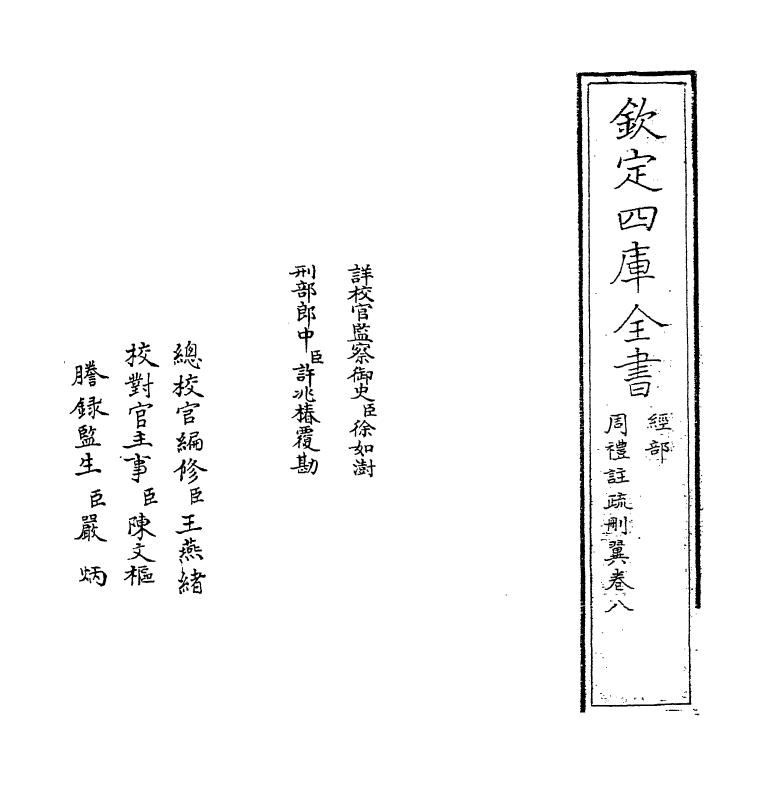 欽定四庫全書
經部
周禮註疏刪翼卷八
詳校官監察御史臣徐如澍
刑部郎中臣許兆椿覆勘
總校官編修臣王燕緒
校對官主事臣陳文樞
謄錄監生臣嚴炳